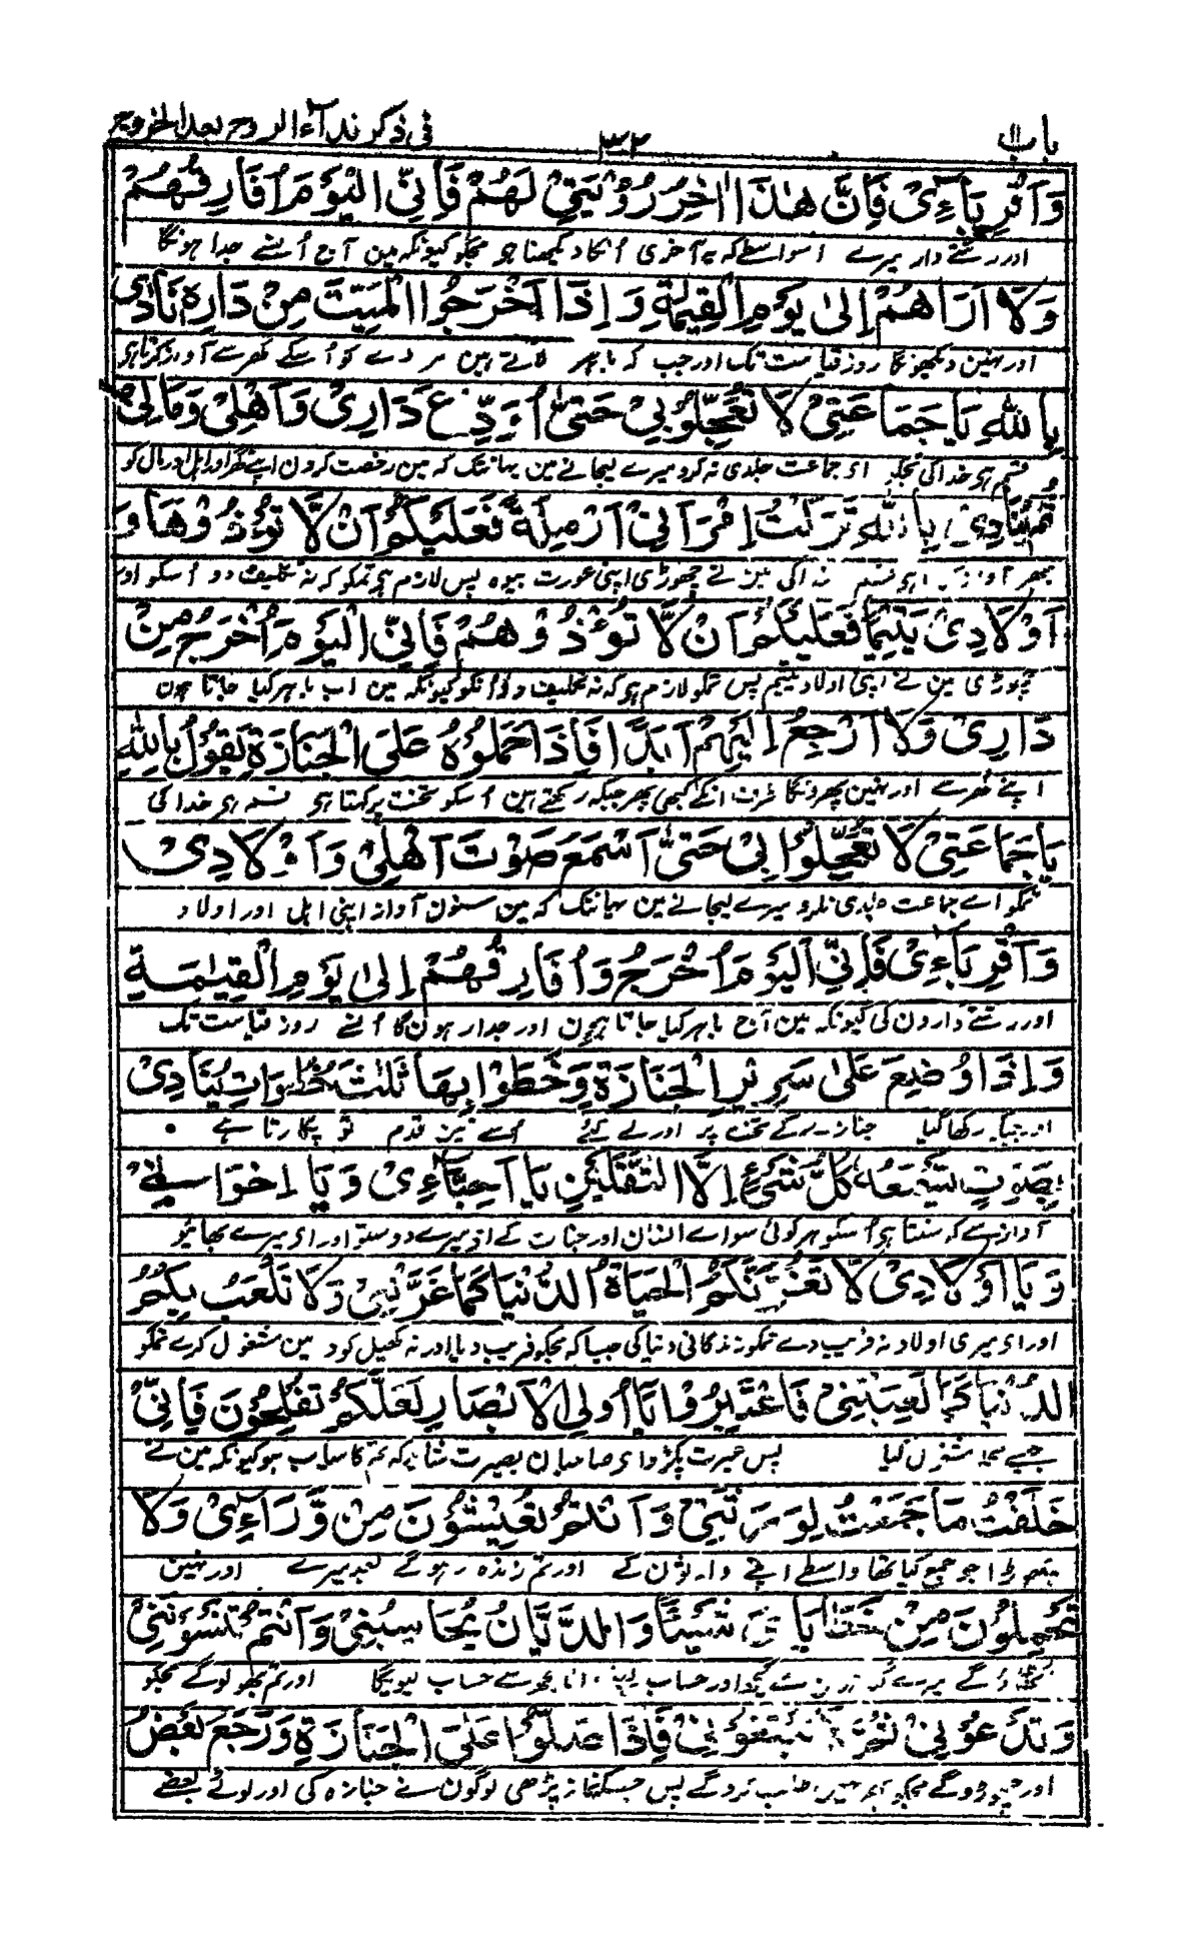 باب ١١
٣٢
فی ذکر ندآء الروح بعد الخروج
وَاَقْرِبَآءِیْ فَاِنَّ هٰذَا اٰخِرُ رُؤْیَتِیْ لَهُمْ فَاِنِّی الْیَوْمَ اُفَارِقُهُمْ
اور رشتے دار میرے اسواسطے کہ یہ آخری اُنکا دیکھنا ہو مجکو کیونکہ مین آج اُنسے جدا ہونگا
وَلَا اَرَاهُمْ اِلٰی یَوْمِ الْقِیٰمَةِ وَاِذَا اَخْرَجُوا الْمَیِّتَ مِنْ دَارِهٖ نَادٰی
اور نہین دیکھونگا روز قیامت تک اور جب کہ باہر لاتے ہین مردے کو اُسکے گھر سے آواز کرتا ہی
بِاللّٰهِ یَا جَمَاعَتِیْ لَا تُعَجِّلُوْنِیْ حَتّٰی اُوَدِّعَ دَارِیْ وَاَهْلِیْ وَمَالِیْ
قسم ہی خدا کی تمکو اے جماعت جلدی نہ کرو میرے لیجانے مین یہانتک کہ مین رخصت کرون اپنے گھر اور اہل اور مال کو
ثُمَّ یُنَادِیْ بِاللّٰهِ تَرَکْتُ اِمْرَاَتِیْ اَرْمِلَةً فَعَلَیْکُمْ اَنْ لَّا تُؤْذُوْهَا وَ
پھر قسم خدا کی مین نے چھوڑی اپنی عورت بیوہ پس لازم ہی تمکو کہ نہ تکلیف دو اُسکو اور
اَوْلَادِیْ یَتِیْمًا فَعَلَیْکُمْ اَنْ لَّا تُؤْذُوْهُمْ فَاِنِّی الْیَوْمَ اُخْرَجُ مِنْ
چھوڑی مین نے اپنی اولاد یتیم پس تمکو لازم ہی کہ نہ تکلیف دو اُنکو کیونکہ مین اب باہر کیا جاتا ہون
دَارِیْ وَلَا اَرْجِعُ اِلَیْهِمْ اَبَدًا فَاِذَا حَمَلُوْهُ عَلَی الْجَنَازَةِ یَقُوْلُ بِاللّٰهِ
اپنے گھر سے اور نہین پھرونگا طرف انکے کبھی پھر جبکہ رکھتے ہین اُسکو تخت پر کہتا ہی قسم ہی خدا کی
یَا جَمَاعَتِیْ لَا تُعَجِّلُوْا بِیْ حَتّٰی اَسْمَعَ صَوْتَ اَهْلِیْ وَاَوْلَادِیْ
تمکو اے جماعت جلدی نکرو میرے لیجانے مین یہانتک کہ مین سنون آواز اپنی اہل اور اولاد
وَاَقْرِبَآءِیْ فَاِنِّی الْیَوْمَ اُخْرَجُ وَاُفَارِقُهُمْ اِلٰی یَوْمِ الْقِیٰمَةِ
اور رشتے دارون کی کیونکہ مین آج باہر کیا جاتا ہون اور جدا ہون گا اُنسے روز قیامت تک
وَاِذَا وُضِعَ عَلٰی سَرِیْرِ الْجَنَازَةِ وَخَطَوْا بِهَا ثَلٰثَ خُطُوَاتٍ یُنَادِیْ
اور جبکہ رکھا گیا جنازے کے تخت پر اور لے گئے اُسے تین قدم تو پکارتا ہے
بِصَوْتٍ یَسْمَعُهٗ کُلُّ شَیْءٍ اِلَّا الثَّقَلَیْنِ یَا اَحِبَّآءِیْ وَیَا اِخْوَانِیْ
آواز سے کہ سنتا ہی اُسکو ہر کوئی سواے انسان اور جنات کے اے میرے دوستو اور اے میرے بھائیو
وَیَا اَوْلَادِیْ لَا تَغُرَّنَّکُمُ الْحَیَاةُ الدُّنْیَا کَمَا غَرَّتْنِیْ وَلَا تَلْعَبُ بِکُمُ
اور اے میری اولاد نہ فریب دے تمکو زندگانی دنیا کی جیسا کہ مجکو فریب دیا اور نہ کھیل کود مین مشغول کرے تمکو
الدُّنْیَا کَمَا لَعِبَتْنِیْ فَاعْتَبِرُوْا یَا اُولِی الْاَبْصَارِ لَعَلَّکُمْ تُفْلِحُوْنَ فَاِنِّیْ
جیسے مجھے مشغول کیا پس عبرت پکڑو اے صاحبان بصیرت شاید کہ تم کامیاب ہو کیونکہ مین نے
خَلَّفْتُ مَا جَمَعْتُ لِوَرَثَتِیْ وَاَنْتُمْ تَعِیْشُوْنَ مِنْ وَّرَآءِیْ وَلَا
چھوڑا جو جمع کیا تھا واسطے اپنے وارثون کے اور تم زندہ رہو گے بعد میرے اور نہین
تَحْمِلُوْنَ مِنْ خَطَایَایَ شَیْئًا وَالدَّیَّانُ یُحَاسِبُنِیْ وَاَنْتُمْ تَنْسَوْنَنِیْ
میرے اور حساب مجھسے حساب لیویگا اور تم بھولوگے مجکو
وَتَدَعُوْنِیْ فَاِذَا صَلَّوْا عَلَی الْجَنَازَةِ وَرَجَعَ بَعْضُ
اور چھوڑوگے مجکو پس جبکہ نماز پڑھی لوگون نے جنازہ کی اور لوٹے بعضے